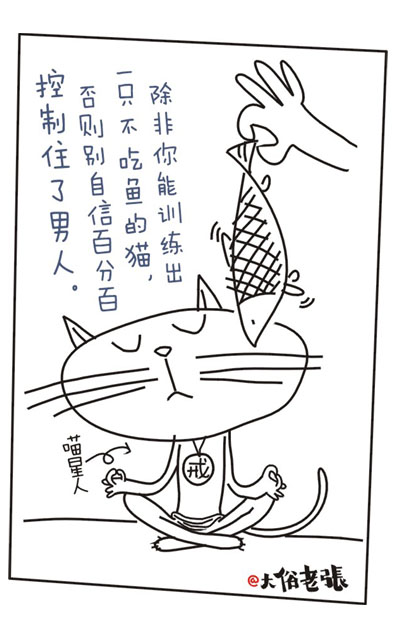 除非你能训练出
一只不吃鱼的猫，
否则别自信百分百
控制住了男人。
喵星人
戒
@大俗老張